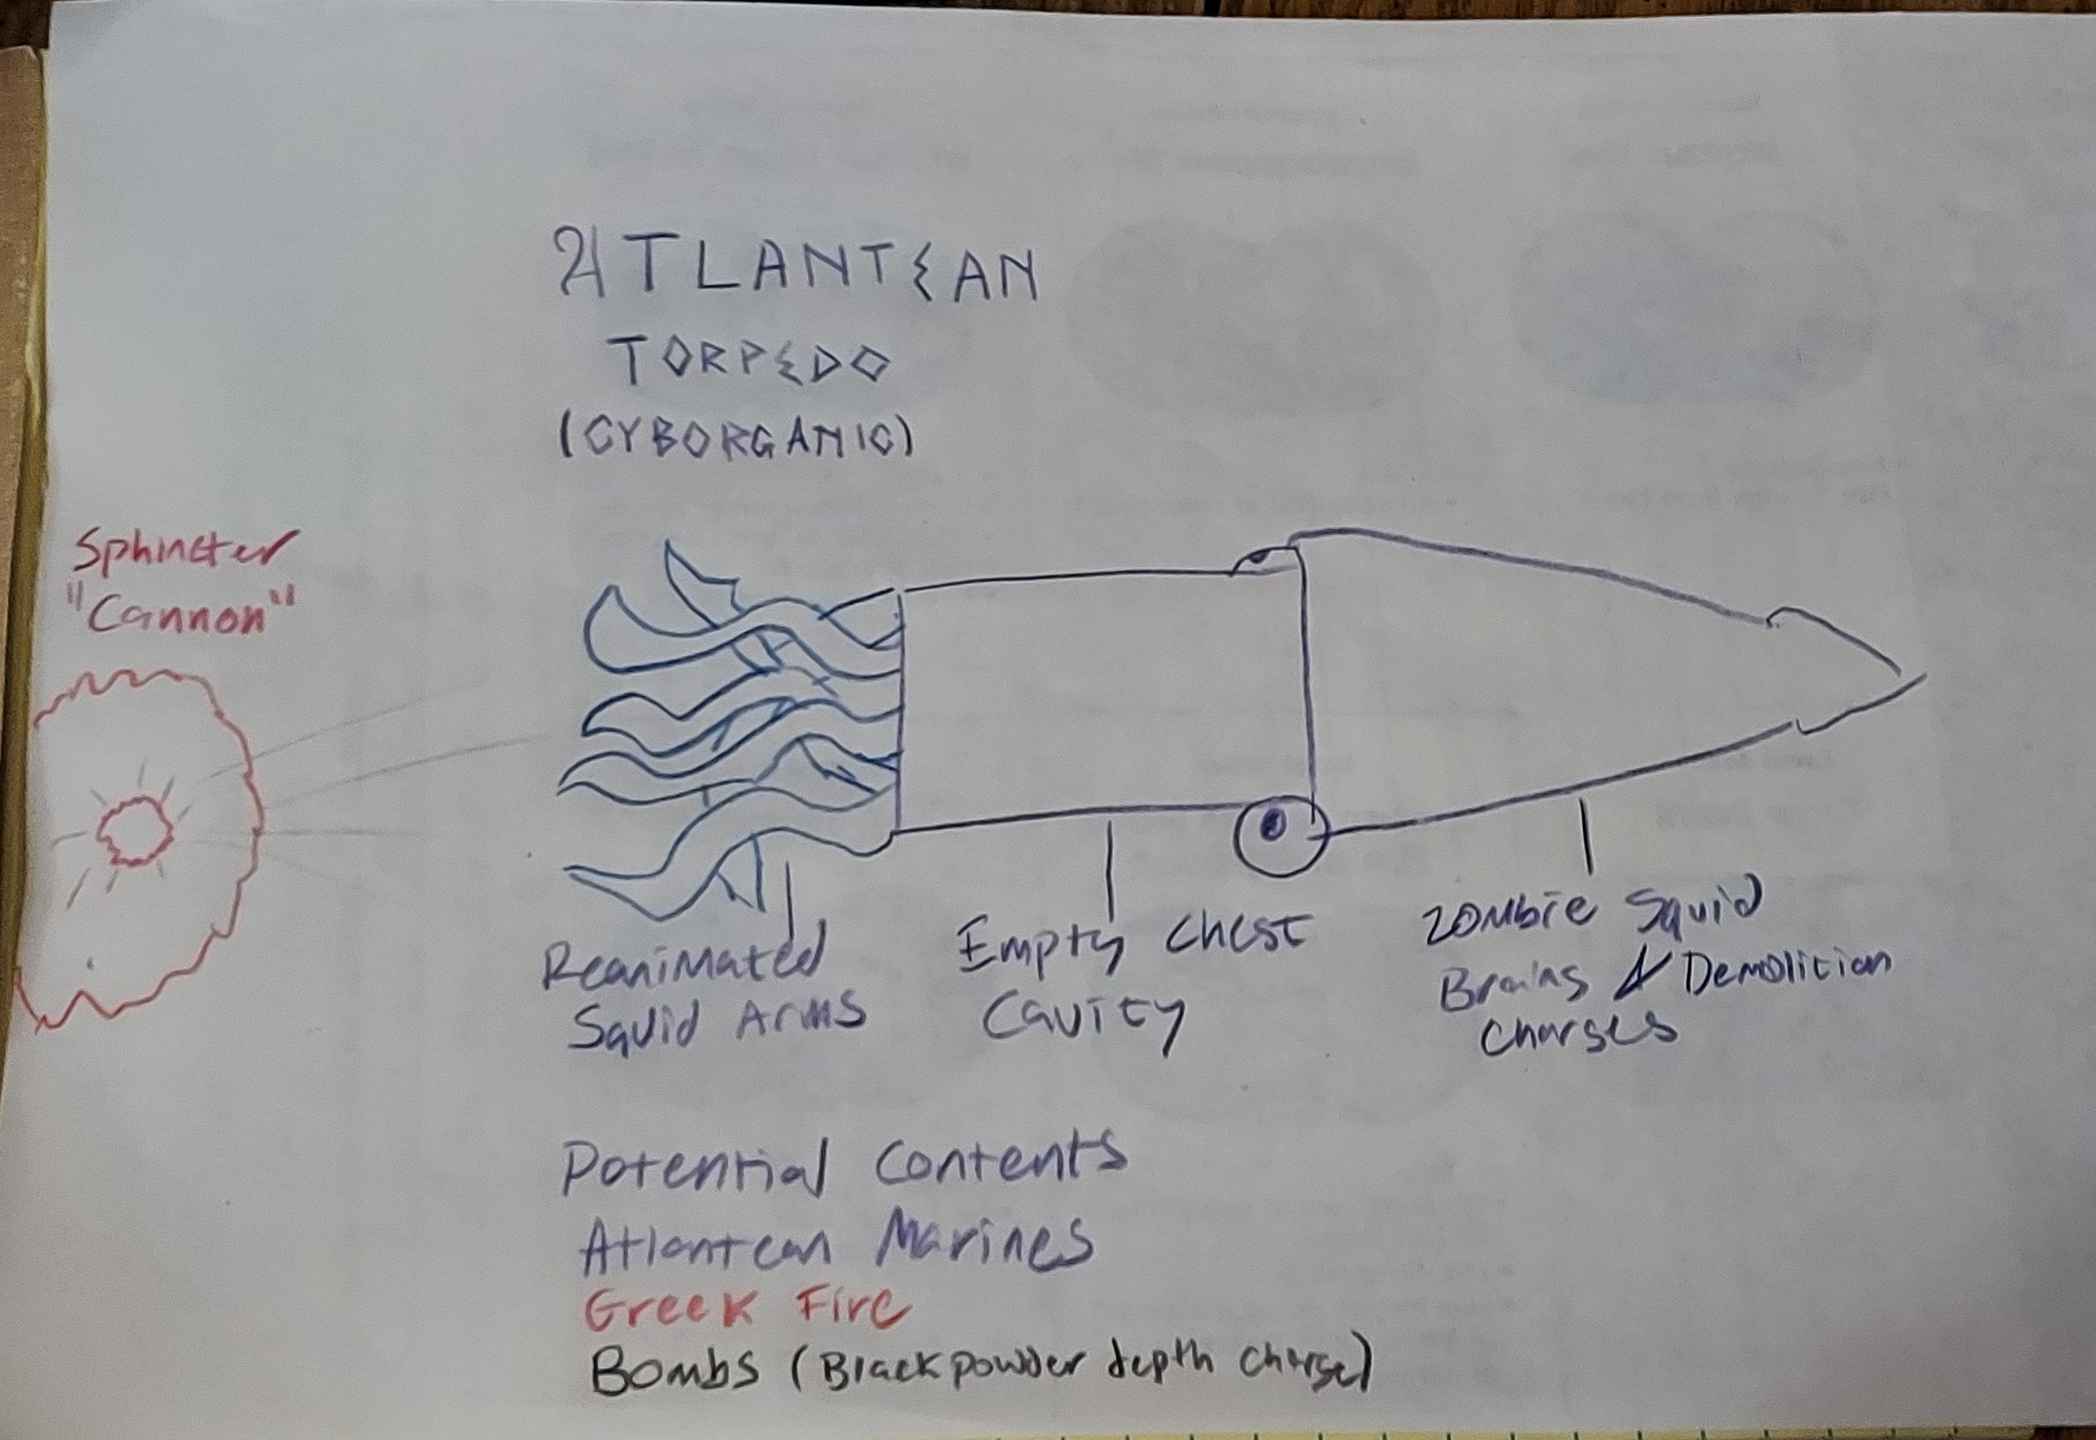 ATLANTEAN
TORPEDO
(CYBORGANIC)
Sphincter
"Cannon"
Reanimated
Squid Arms
Empty Chest
Cavity
Zombie Squid
Brains & Demolition
Charges
Potential Contents
Atlantean Marines
Greek Fire
Bombs (Blackpowder depth charge)